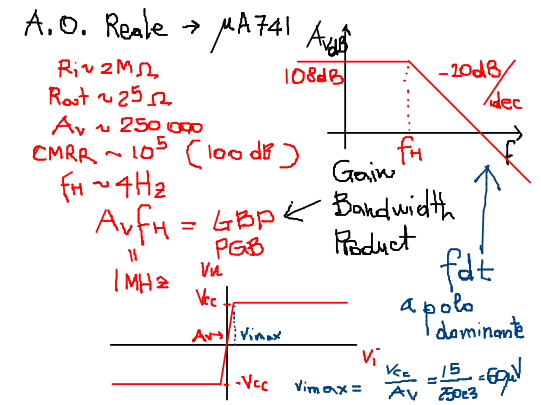 A.O. Reale → μA741
Ri ~ 2MΩ
Rout ~ 25Ω
Av ~ 250 000
CMRR ~ 10⁵ (100 dB)
fH ~ 4Hz
AvfH = GBP
PGB
=
1MHz
AvdB
108dB
-20dB/dec
fH
f
Gain
Bandwidth
Product
fdt
a polo
dominante
Vu
Vcc
Av→
Vimax
Vi
-Vcc
Vimax = Vcc/Av = 15/250e3 = 60μV